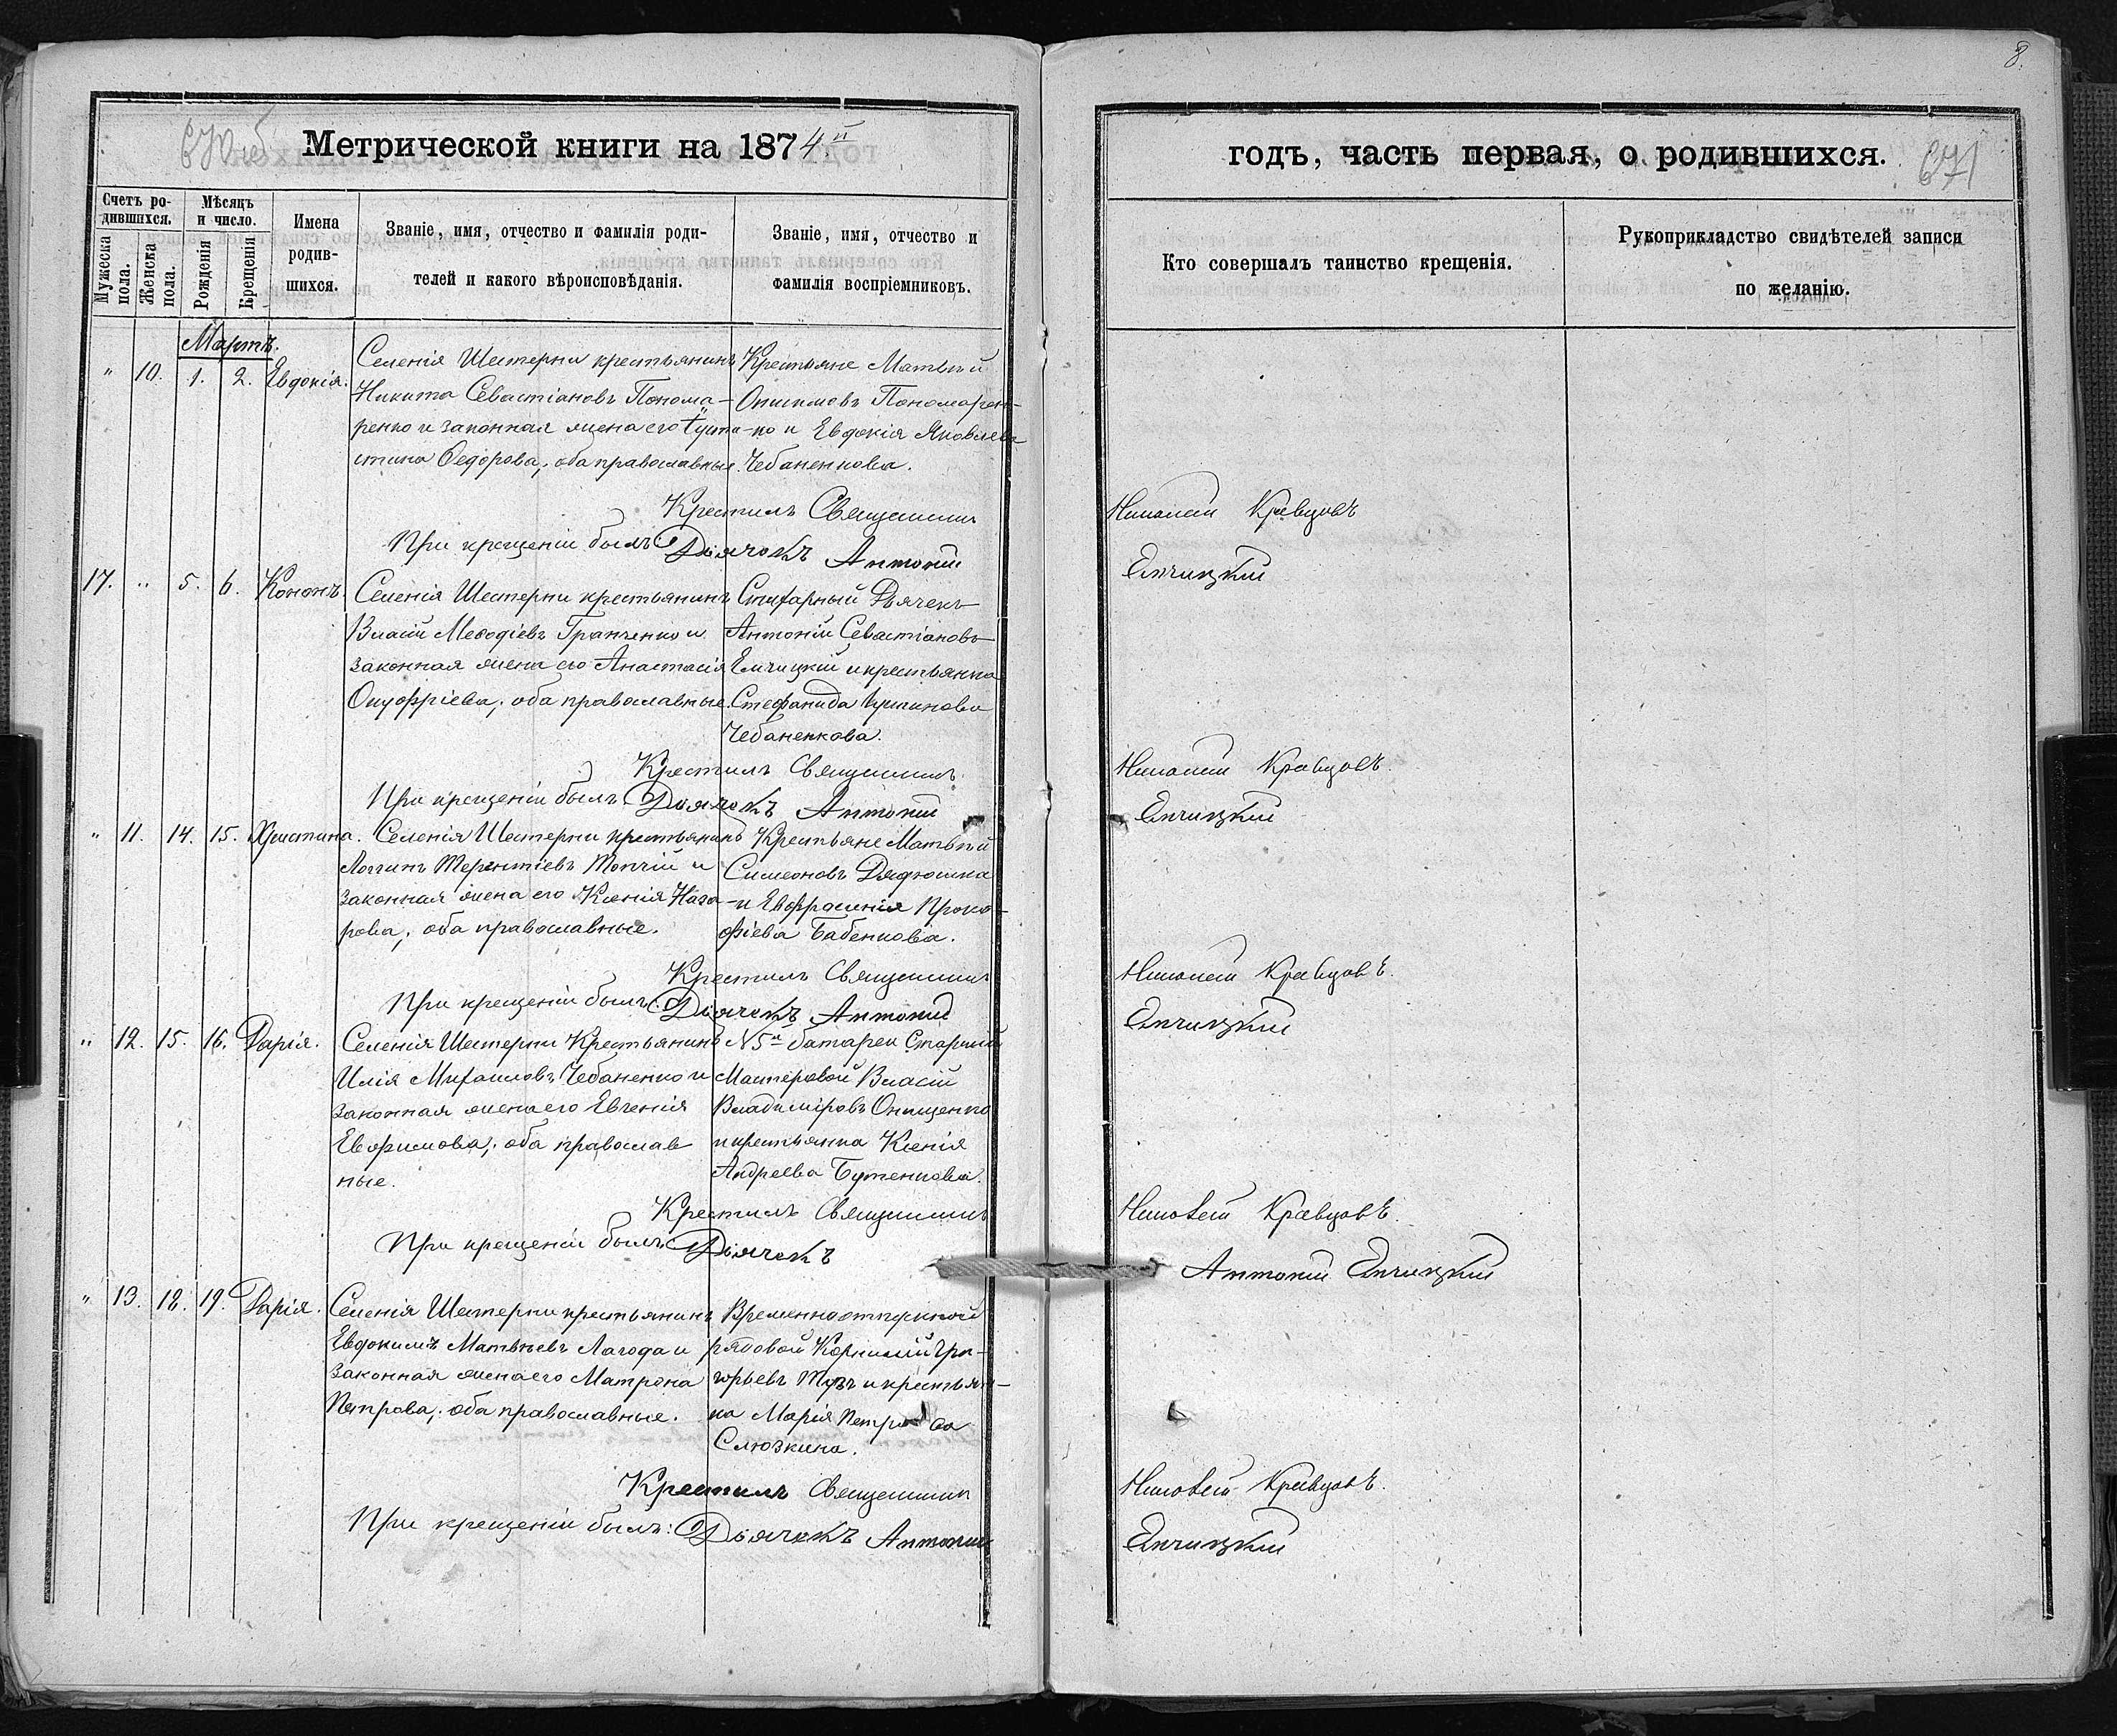 8.
670 об
Метрической книги на 1874й
годъ, часть первая, о родившихся.
671
Счетъ родившихся.
Мужеска пола.
Женска пола.
Мѣсяцъ и число.
Рожденія
Крещенія
Имена родившихся.
Званіе, имя, отчество и фамилія роди-
телей и какого вѣроисповѣданія.
Званіе, имя, отчество и
фамилія воспріемниковъ.
Кто совершалъ таинство крещенія.
Рукоприкладство свидѣтелей записи
по желанію.
Мартъ.
" 10. 1. 2. Евдокія.
Селенія Шестерни крестьянинъ
Никита Севастіановъ Понома-
ренко и законная жена его Іуста-
стина Ѳедорова, оба православные.
Крестьяне Матвѣй
Онисимовъ Пономарен-
ко и Евдокія Яковлева
Чебаненкова.
Крестилъ Священникъ Николай Кравцовъ
При крещеніи былъ: Дьячокъ Антоній Ельчицкій
17. " 5. 6. Кононъ.
Селенія Шестерни крестьянинъ
Власій Меѳодіевъ Гранченко и
законная жена его Анастасія
Онуфріева, оба православные.
Стихарный Дьячекъ
Антоній Севастіановъ
Ельчицкій и крестьянка
Стефанида
Чебаненкова.
Крестилъ Священникъ Николай Кравцовъ.
При крещеніи былъ: Дьячокъ Антоній Ельчицкій
" 11. 14. 15. Христина.
Селенія Шестерни крестьянинъ
Логгинъ Терентіевъ Топчій и
законная жена его Ксенія Наза-
рова, оба православные.
Крестьяне Матвѣй
Симеоновъ Дядюшка
и Евфросинія Проко-
фіева Бабенкова.
Крестилъ Священникъ Николай Кравцовъ.
При крещеніи былъ: Дьячекъ Антоній Ельчицкій
" 12. 15. 16. Дарія.
Селенія Шестерни Крестьянинъ
Илія Михаиловъ Чебаненко и
законная жена его Евгенія
Евфимова, оба православ
ные.
№ 5й батареи Старшій
Мастеровой Власій
Владиміровъ Онищенко
и крестьянка Ксенія
Андреева Бутенкова.
Крестилъ Священникъ Николай Кравцовъ.
При крещеніи былъ Дьячекъ Антоній Ельчицкій
" 13. 18. 19. Дарія.
Селенія Шестерни крестьянинъ
Евдокимъ Матвѣевъ Лагода и
законная жена его Матрона
Петрова, оба православные.
Временноотпускной
рядовой Корнилій Гри-
горьевъ и крестьян-
ка Марія Петрова
Слюзкина.
Крестилъ Священникъ Николай Кравцовъ.
При крещеніи былъ: Дьячекъ Антоній Ельчицкій